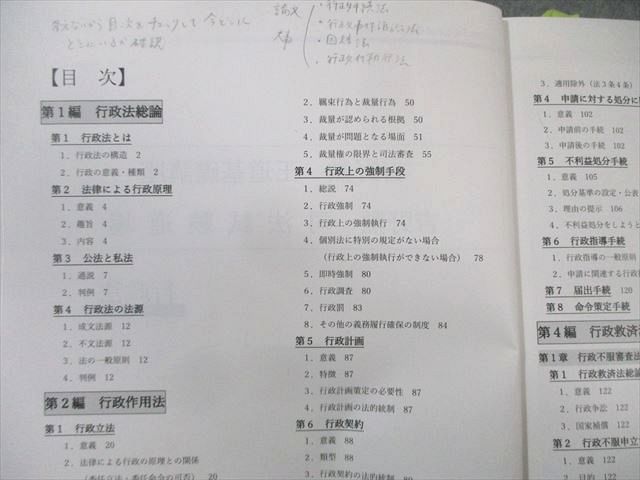 覚えながら目次をチェックして今どこに
とこにいるか確認
論文
・行政手続法
・行政事件訴訟法
・国賠法
・行政代執行法
【目 次】
第1編 行政法総論
第1 行政法とは
1．行政法の構造 2
2．行政の意義・種類 2
第2 法律による行政原理
1．意義 4
2．趣旨 4
3．内容 4
第3 公法と私法
1．通説 7
2．判例 7
第4 行政法の法源
1．成文法源 12
2．不文法源 12
3．法の一般原則 12
4．判例 12
第2編 行政作用法
第1 行政立法
1．意義 20
2．法律による行政の原理との関係
（委任立法・委任命令の可否） 20
2．羈束行為と裁量行為 50
3．裁量が認められる根拠 50
4．裁量が問題となる場面 51
5．裁量権の限界と司法審査 55
第4 行政上の強制手段
1．総説 74
2．行政強制 74
3．行政上の強制執行 74
4．個別法に特別の規定がない場合
（行政上の強制執行ができない場合） 78
5．即時強制 80
6．行政調査 80
7．行政罰 83
8．その他の義務履行確保の制度 84
第5 行政計画
1．意義 87
2．特徴 87
3．行政計画策定の必要性 87
4．行政計画の法的統制 87
第6 行政契約
1．意義 88
2．類型 88
3．行政契約の法的統制 89
3．適用除外（法3条4条）
第4 申請に対する処分に
1．意義 102
2．申請前の手続 102
3．申請後の手続 102
第5 不利益処分手続
1．意義 105
2．処分基準の設定・公表
3．理由の提示 106
4．不利益処分をしようと
第6 行政指導手続
1．行政指導の一般原則
2．申請に関連する行政
第7 届出手続 120
第8 命令策定手続
第4編 行政救済
第1章 行政不服審査法
第1 行政救済法総論
1．意義 122
2．行政争訟 122
3．国家補償 122
第2 行政不服申立
1．意義 122
2．目的 122